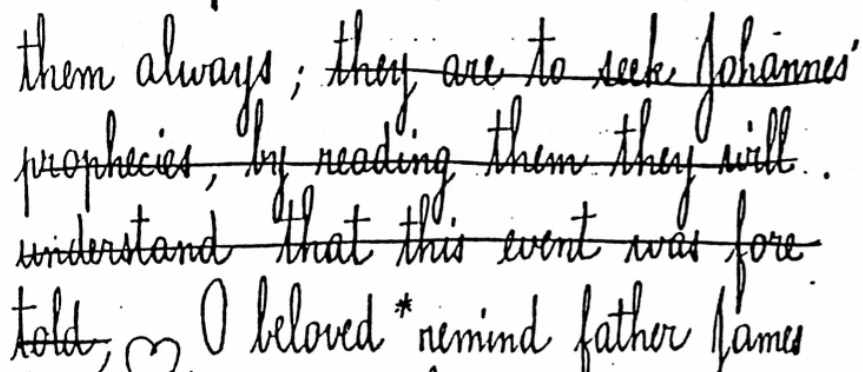 them always; they are to seek Johannes'
prophecies, by reading them they will
understand that this event was fore
told, O beloved *remind father James